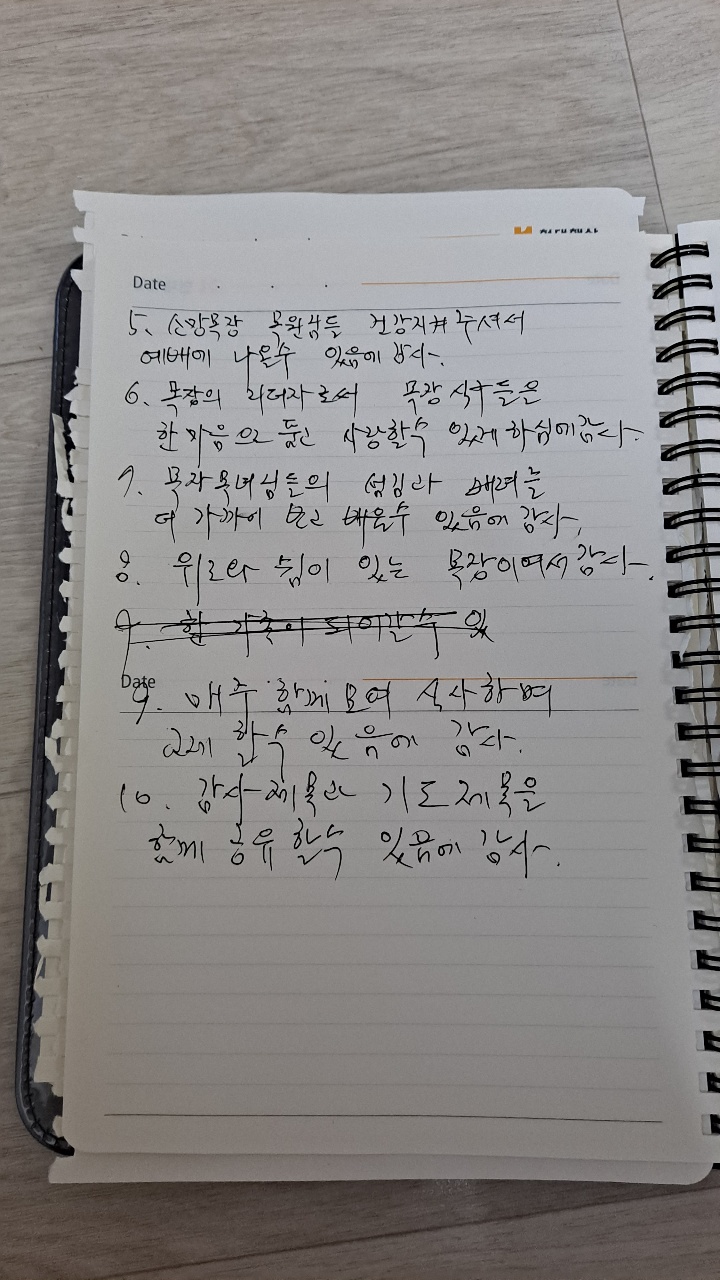 Date
5. 소망목장 목원님들 건강지켜 주셔서
예배에 나올수 있음에 감사.
6. 목장의 리더자로서 목장 식구들은
한마음으로 품고 사랑할수 있게하심에감사.
7. 목자목녀님들의 섬김과 배려를
더 가까이 보고 배울수 있음에 감사,
8. 위로와 쉼이 있는 목장이여서 감사.
9. 한 가족이 되어갈수 있
Date
9. 매주 함께 모여 식사하며
교제 할수 있음에 감사.
10. 감사제목과 기도제목을
함께 공유 할수 있음에 감사.